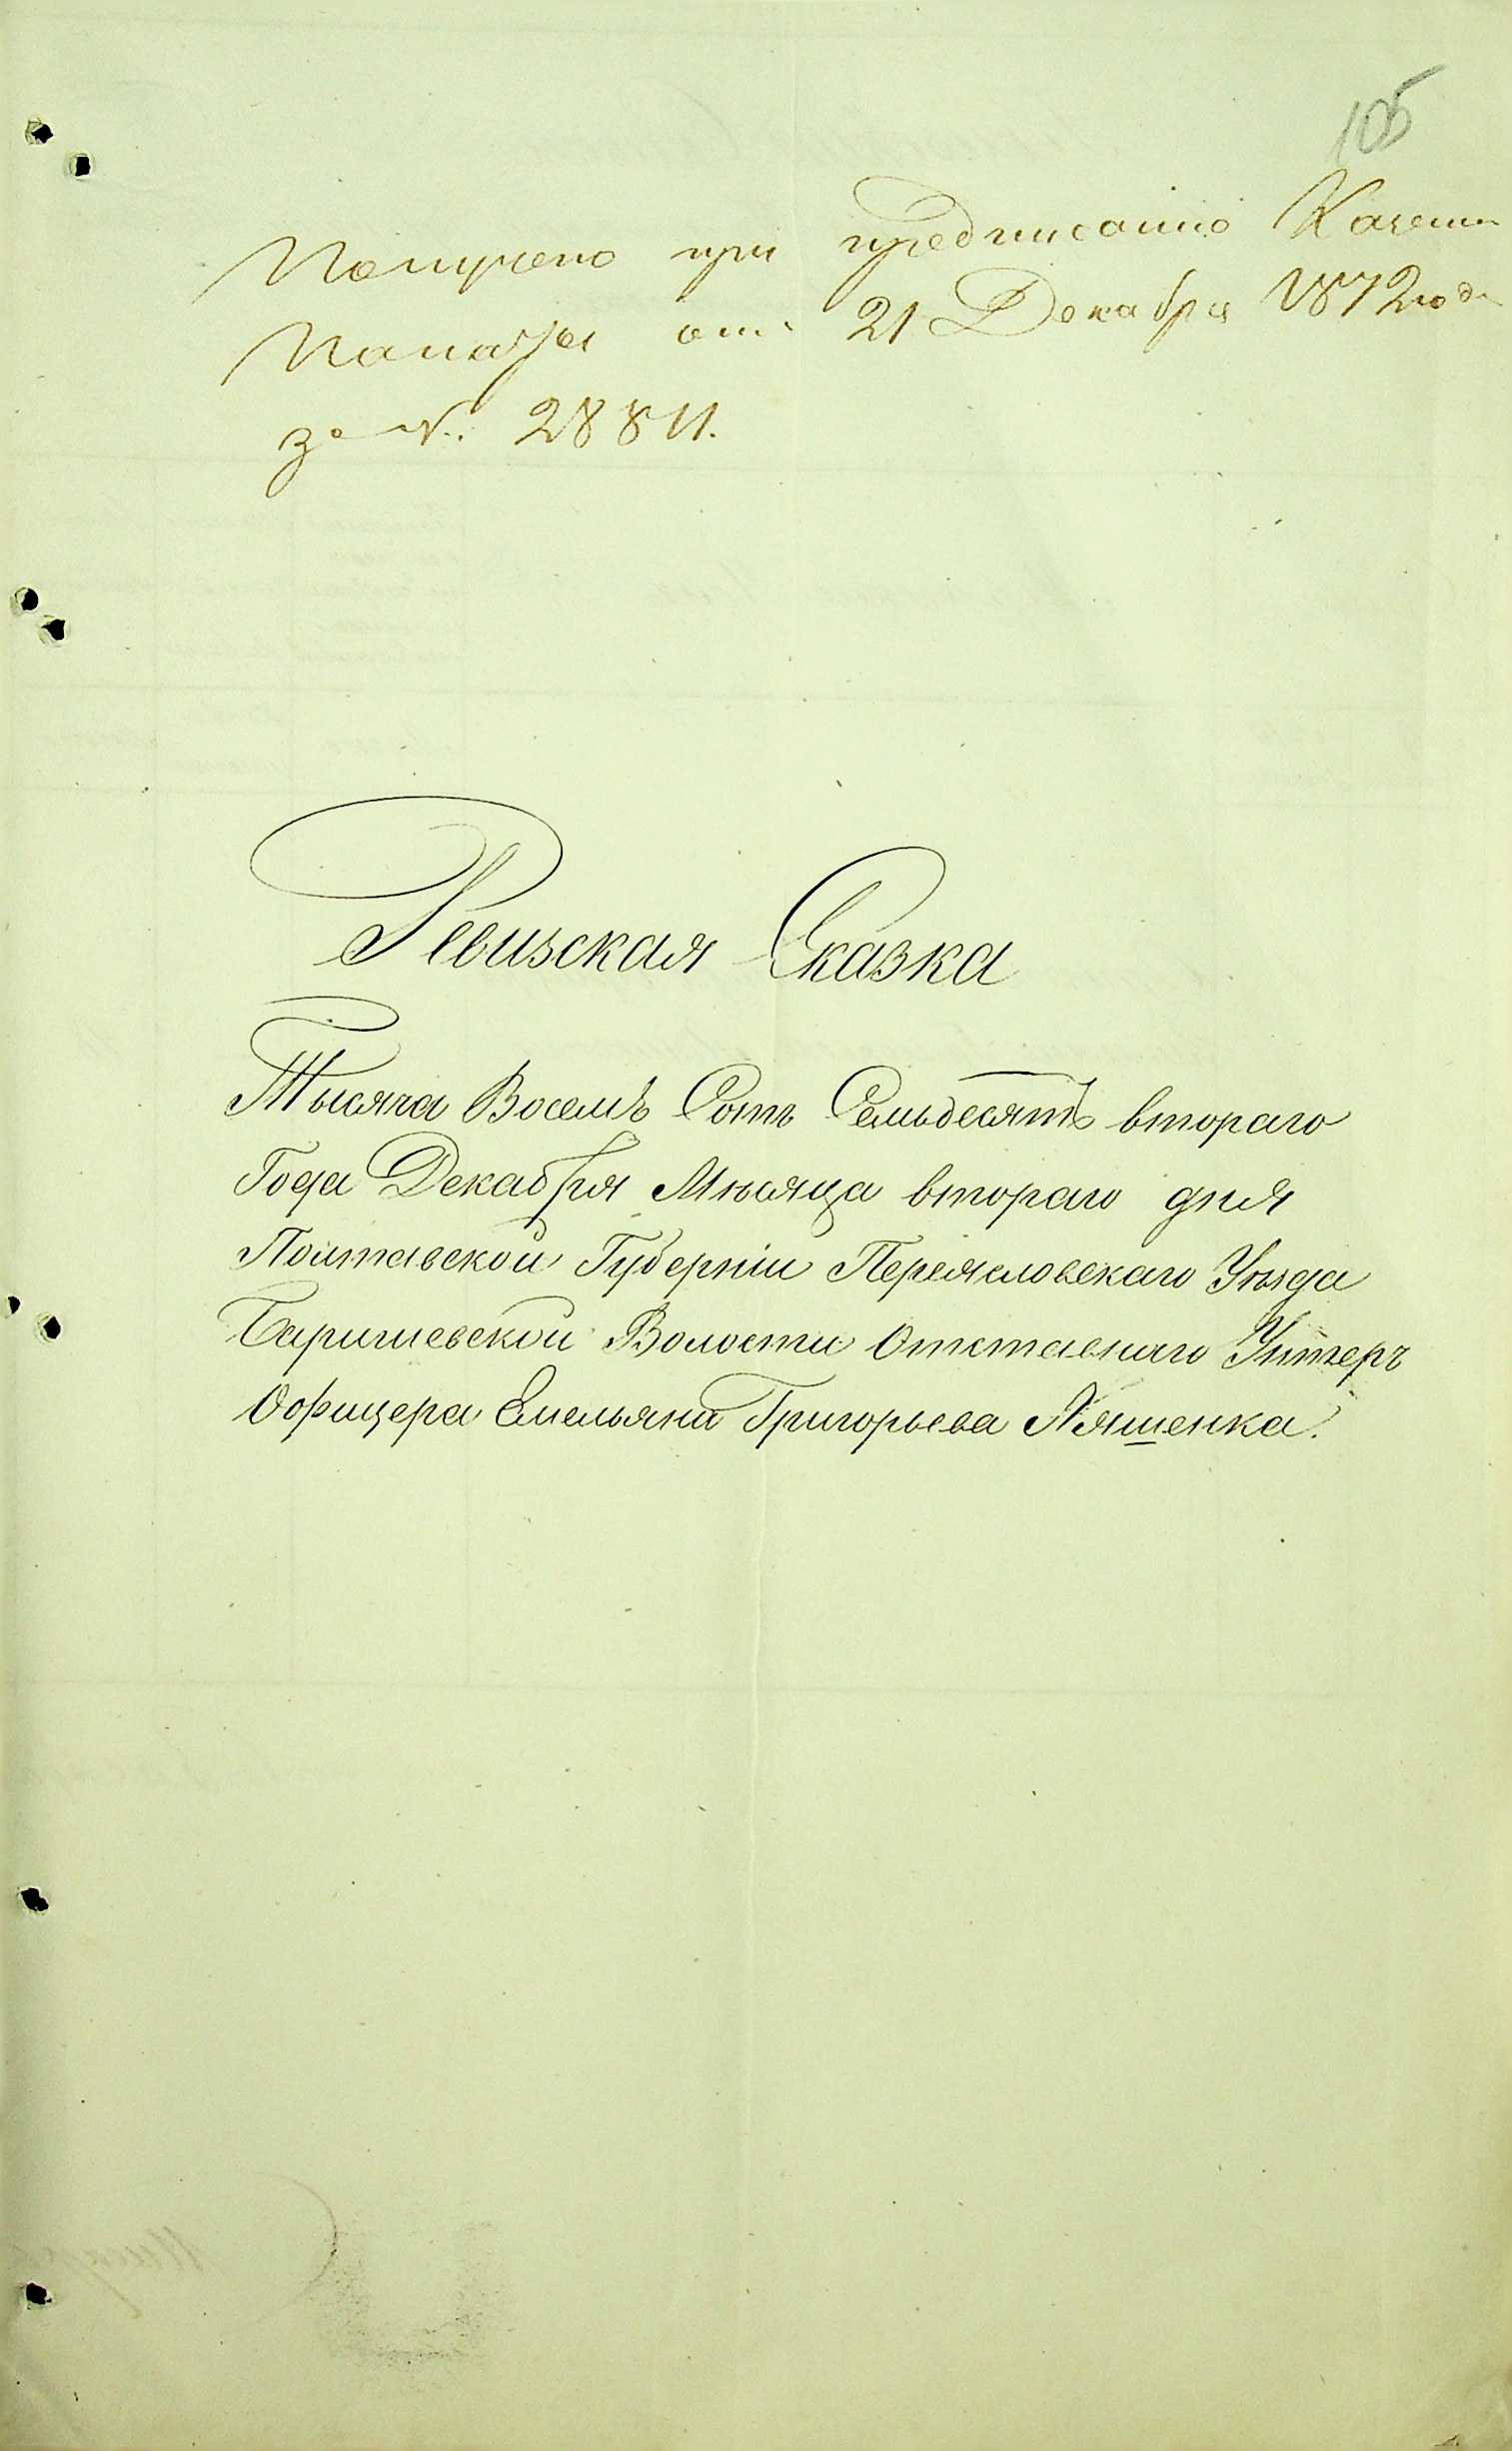 105
Получено при предписаніи Казенн
Палаты отъ 21 Декабря 1872 года
за №. 28811.
Ревизская Сказка
Тысяча Восемъ Сотъ Семьдесятъ втораго
Года Декабря Мѣсяца втораго дня
Полтавской Губерніи Переясловскаго Уѣзда
Баришевской Волости Отставнаго Унтеръ
Оофицера Емельяна Григорьева Ляшенка.